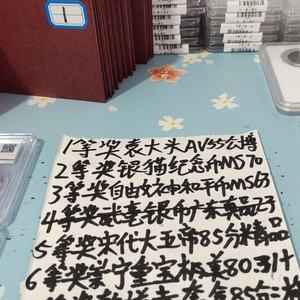 1
1等奖袁大头AV55公博
2等奖银猫纪念币MS70
3等奖自由女神和平币MS63
4等奖武 银币广东 品23
5等奖宋代大五帝85分精品
6等奖崇宁重宝极美80